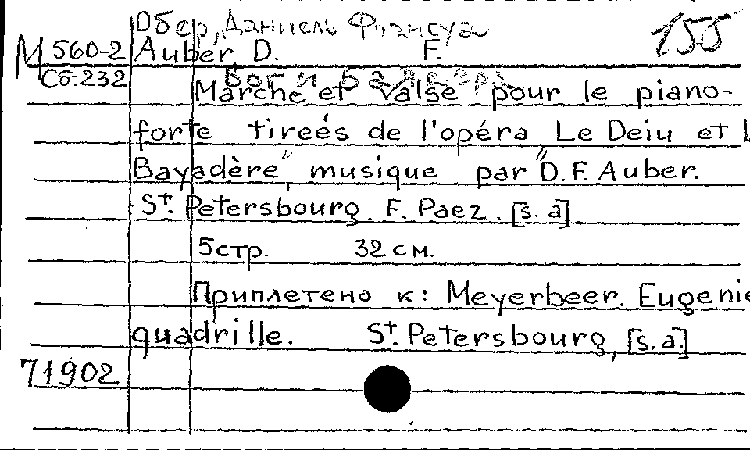 Обер, Даниель Франсуа
155
М 560-2 Auber, D. F.
Сб.232 Бог и Баядера
Marche et Valse pour le piano-
forte tireés de l'opéra Le Deiu et l
Bayadère" musique par "D.F. Auber.
St. Petersbourg. F. Paez. [s.a].
5стр. 32 см.
Приплетено к: Meyerbeer. Eugenie
quadrille. St. Petersbourg, [s.a.]
71902